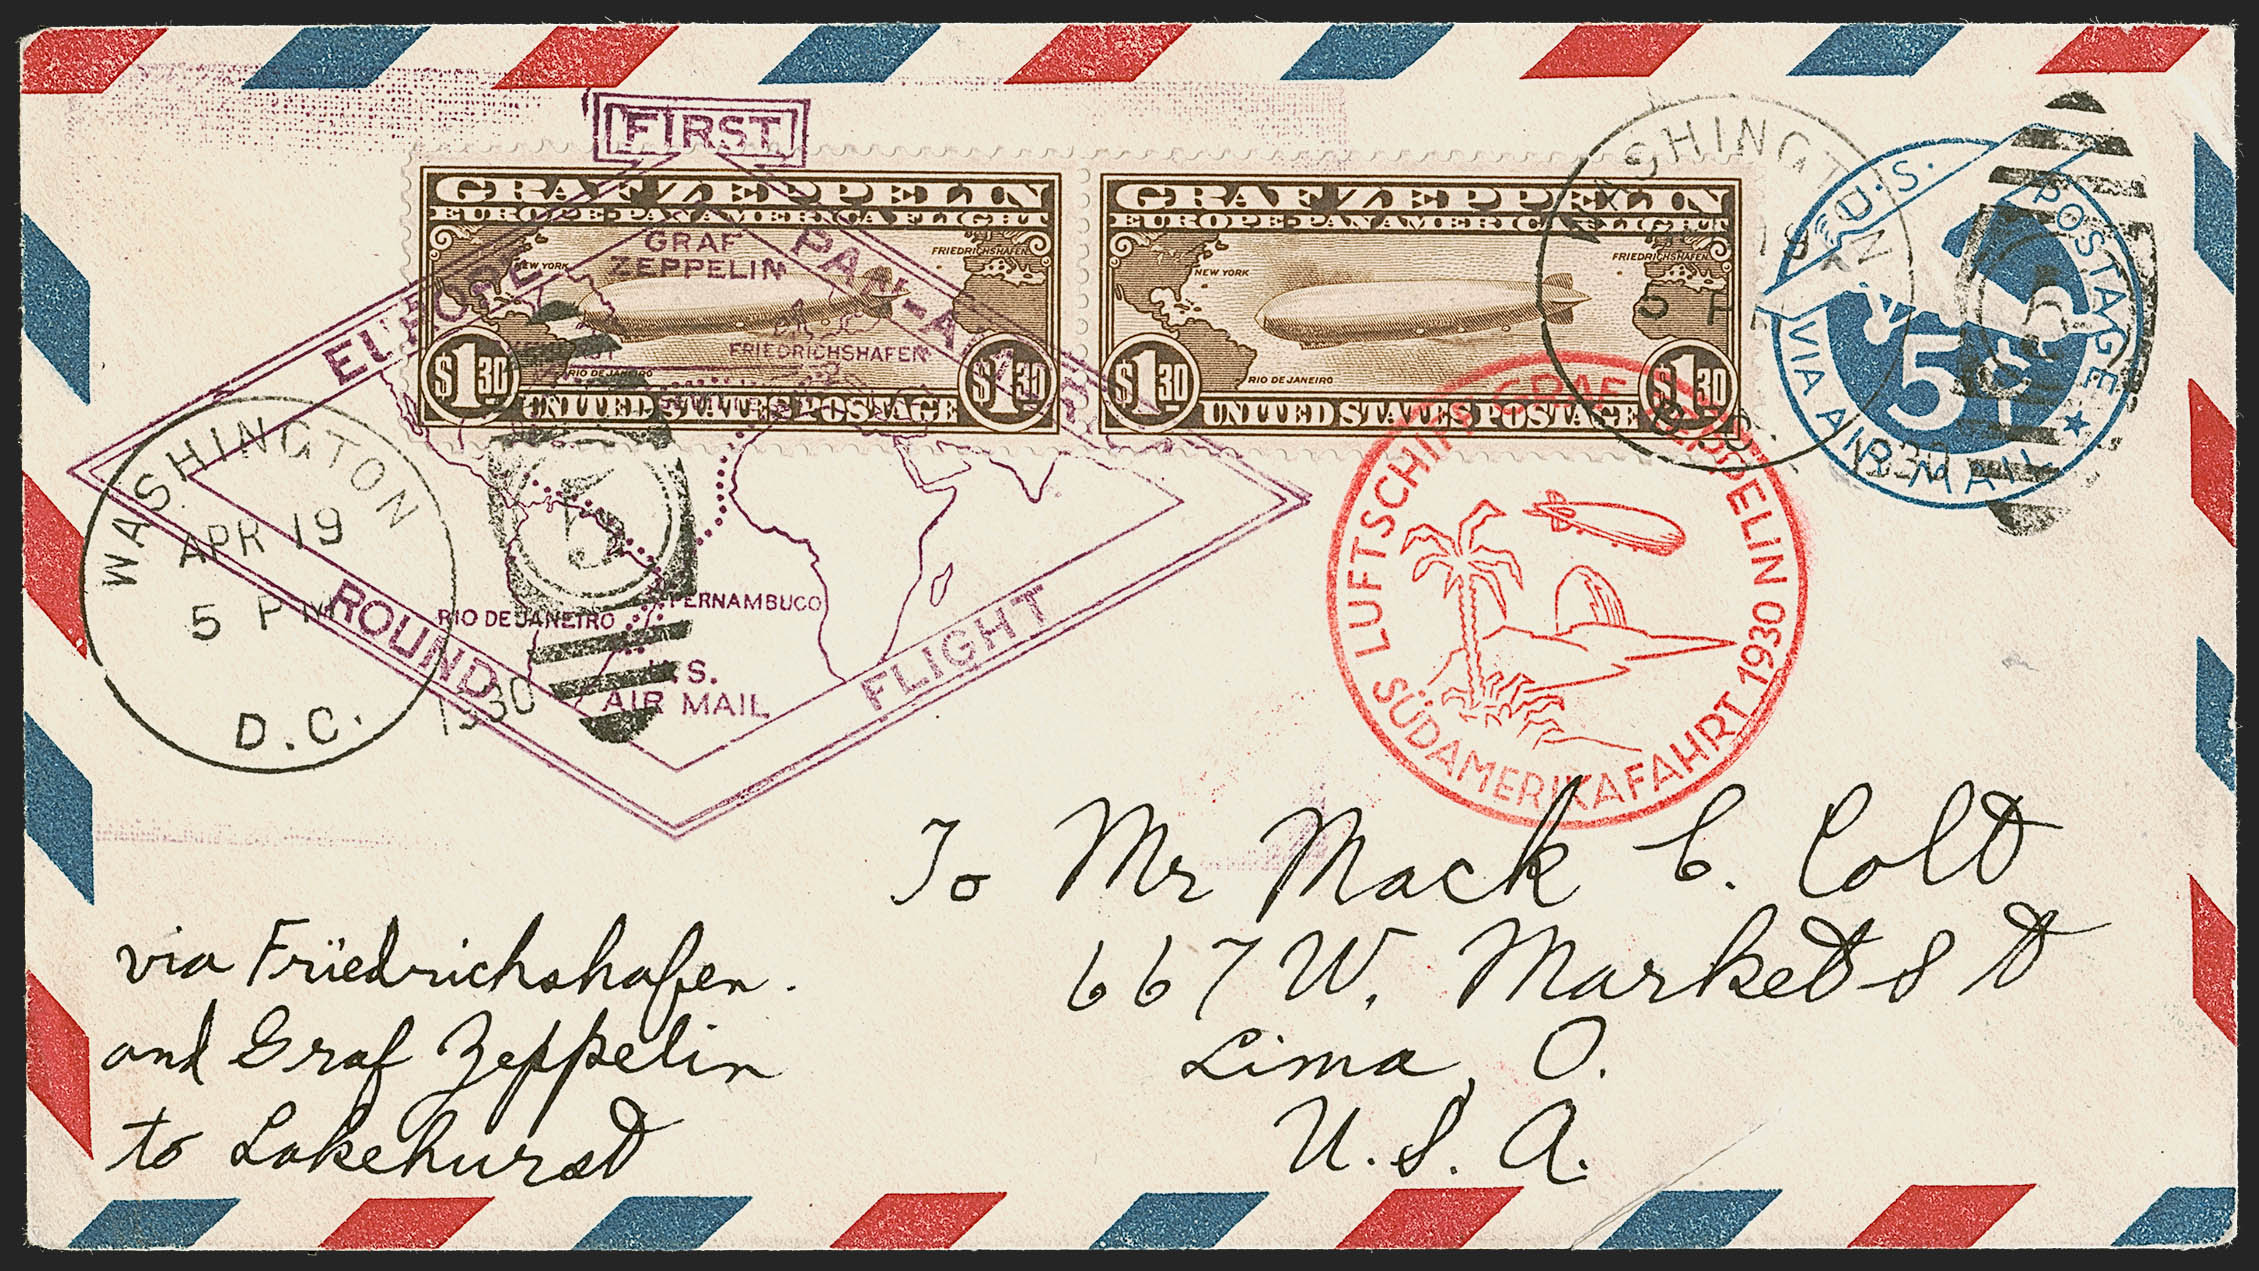 FIRST
EUROPE PAN-AMER
ROUND FLIGHT
GRAF
ZEPPELIN
FRIEDRICHSHAFEN
RIO DE JANEIRO
PERNAMBUCO
U.S.
AIR MAIL
GRAF ZEPPELIN
EUROPE-PAN AMERICA FLIGHT
NEW YORK
FRIEDRICHSHAFEN
RIO DE JANEIRO
$1.30
$1.30
UNITED STATES POSTAGE
GRAF ZEPPELIN
EUROPE-PAN AMERICA FLIGHT
NEW YORK
FRIEDRICHSHAFEN
RIO DE JANEIRO
$1.30
$1.30
UNITED STATES POSTAGE
WASHINGTON
19
5 P
D.C.
1930
5
U.S. POSTAGE
VIA AIR MAIL
5¢
WASHINGTON
APR 19
5 PM
D.C.
1930
5
LUFTSCHIFF GRAF ZEPPELIN
SÜDAMERIKAFAHRT 1930
To Mr Mack C. Colt
667 W. Market St
Lima, O.
U.S.A.
via Friedrichshafen.
and Graf Zeppelin
to Lakehurst